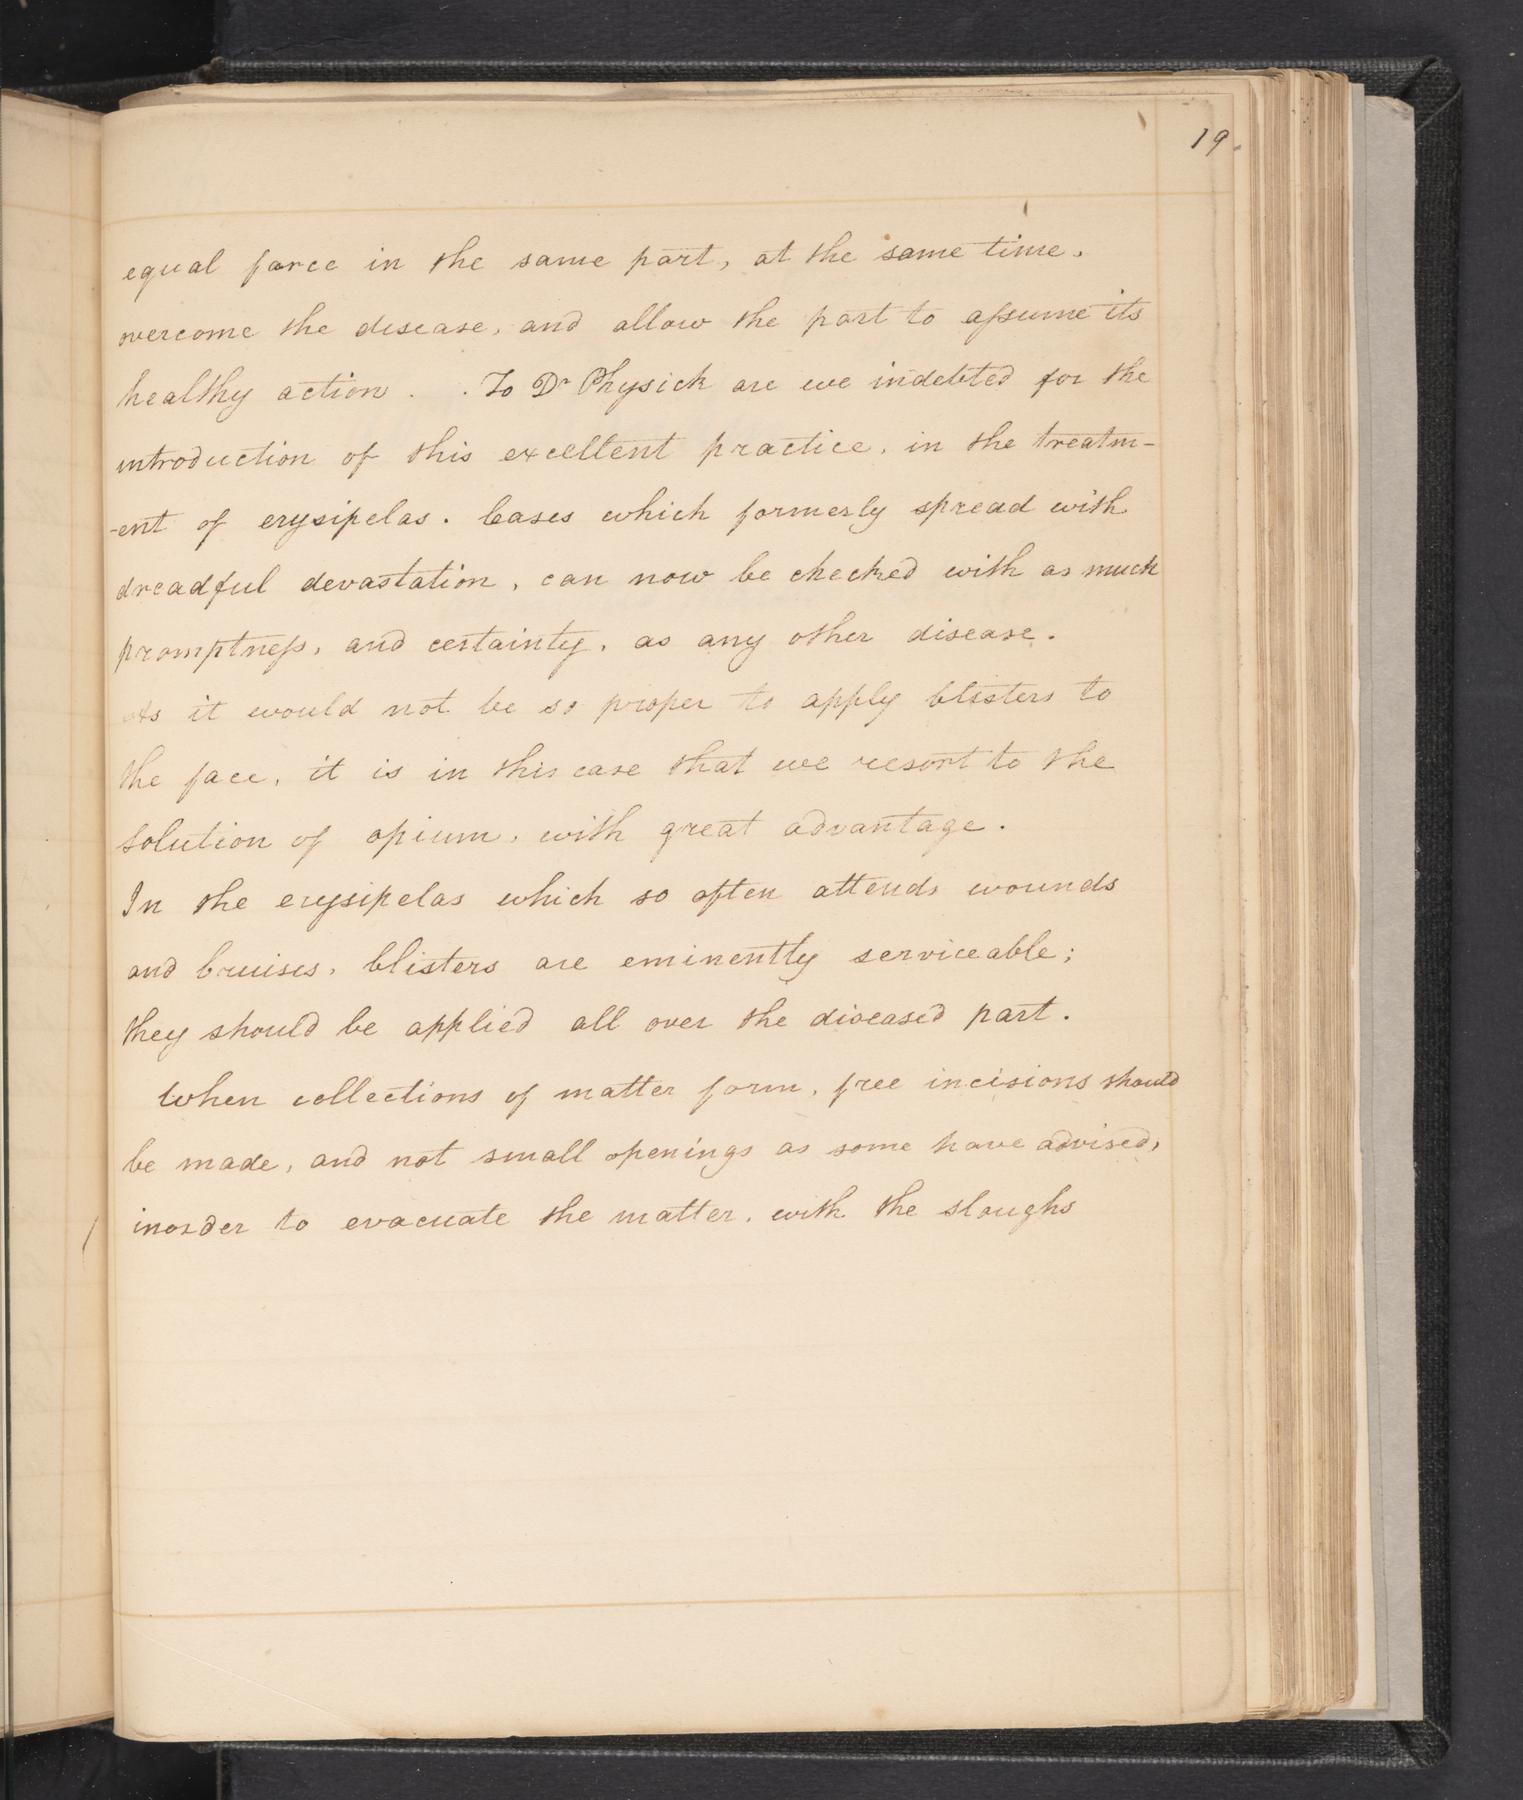 19.
equal force in the same part, at the same time,
overcome the disease, and allow the part to assume its
healthy action . . To Dr Physick are we indebted for the
introduction of this excellent practice, in the treatm-
-ent of erysipelas. Cases which formerly spread with
dreadful devastation, can now be checked with as much
promptness, and certainty, as any other disease.
As it would not be so proper to apply blisters to
the face, it is in this case that we resort to the
solution of opium, with great advantage.
In the erysipelas which so often attends wounds
and bruises, blisters are eminently serviceable;
they should be applied all over the diseased part.
When collections of matter form, free incisions should
be made, and not small openings as some have advised,
inorder to evacuate the matter, with the sloughs